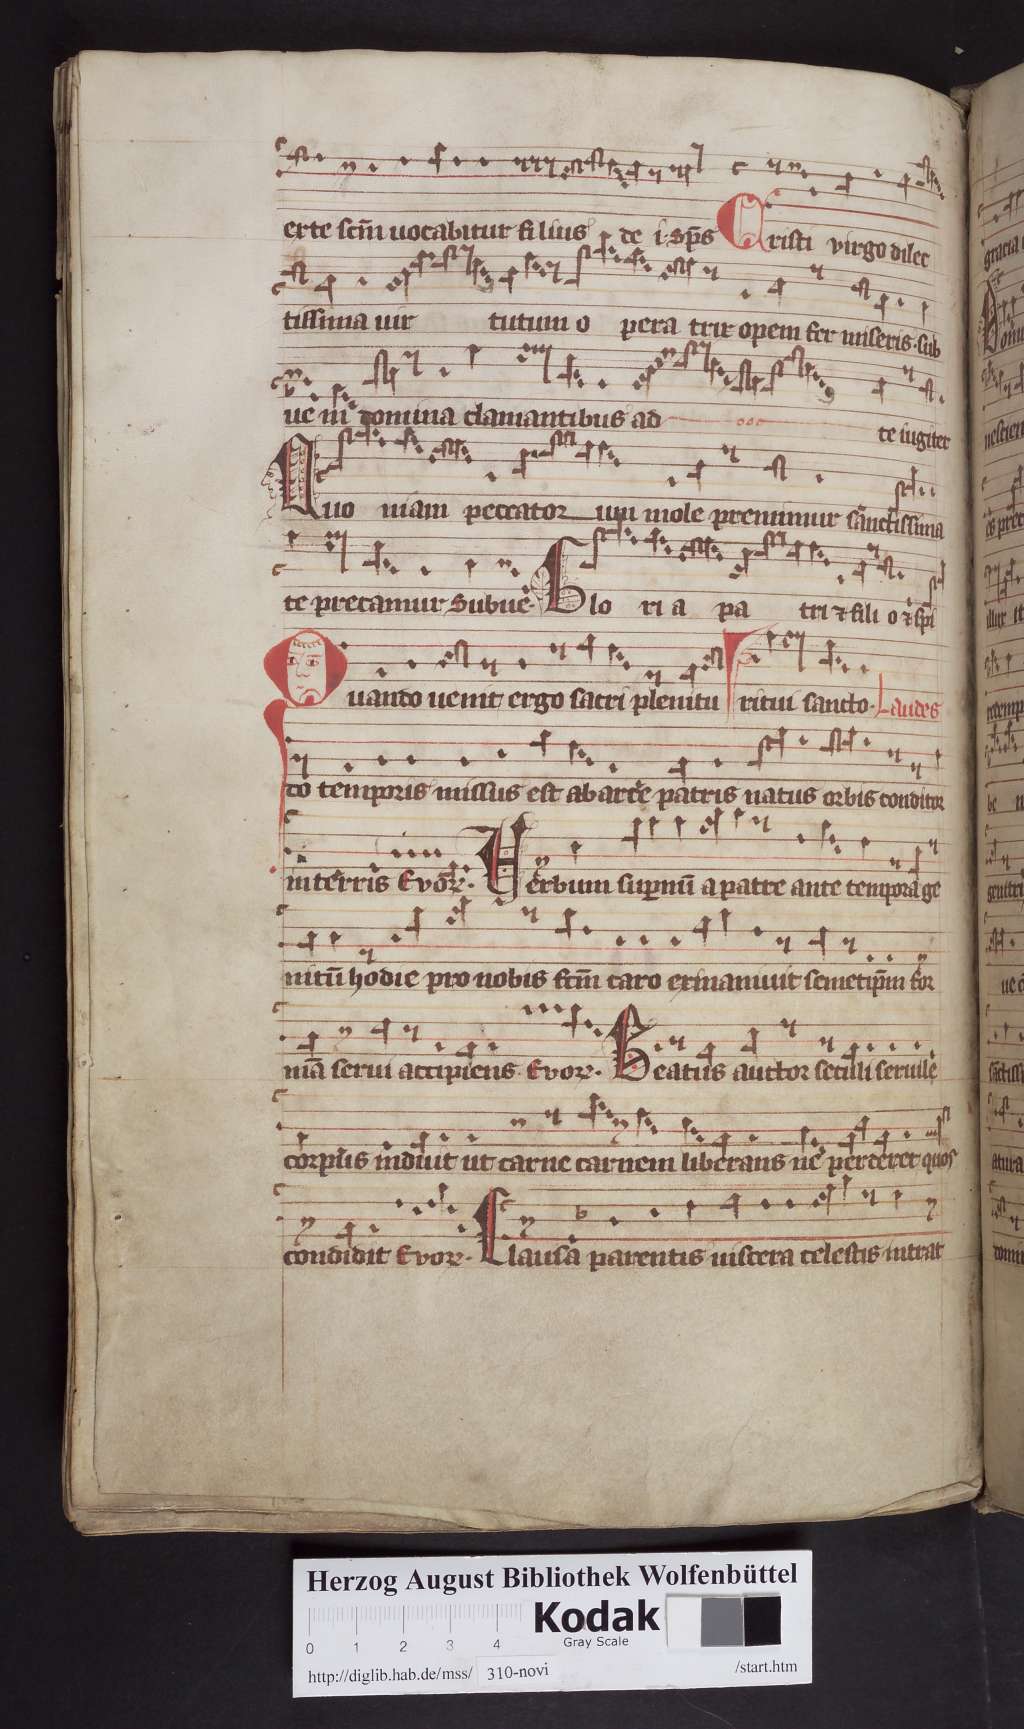 erte scm̄ uocabitur filius de i. Sp̄s Cristi virgo dilec
tissima uir tutum o pera trir opem fer miseris. sub
ue ni domina clamantibus ad te iugiter
Quo niam peccator um mole premimur sanctissima
te precamur Subue. Glo ri a pa tri ⁊ fili o ⁊ sp̄i
Quando uenit ergo sacri plenitu ritui sancto. Laudes
do temporis missus est ab arce patris natus orbis conditor
in terris Evoϝ. Verbum supernū a patre ante tempora ge
nitū hodie pro nobis fcm̄ caro exinaniuit semetip̄m for
mā serui accipiens. Evoϝ. Beatus auctor seculi seruile
corpus induit ut carne carnem liberans ne perderet quos
condidit Evoϝ. Clausa parentis uiscera celestis intrat
gracia
Domi
nescien
illux
redemp
be
genitri
ue
sāctiss
atura
domin
Herzog August Bibliothek Wolfenbüttel
Kodak
Gray Scale
0 1 2 3 4
http://diglib.hab.de/mss/ 310-novi /start.htm